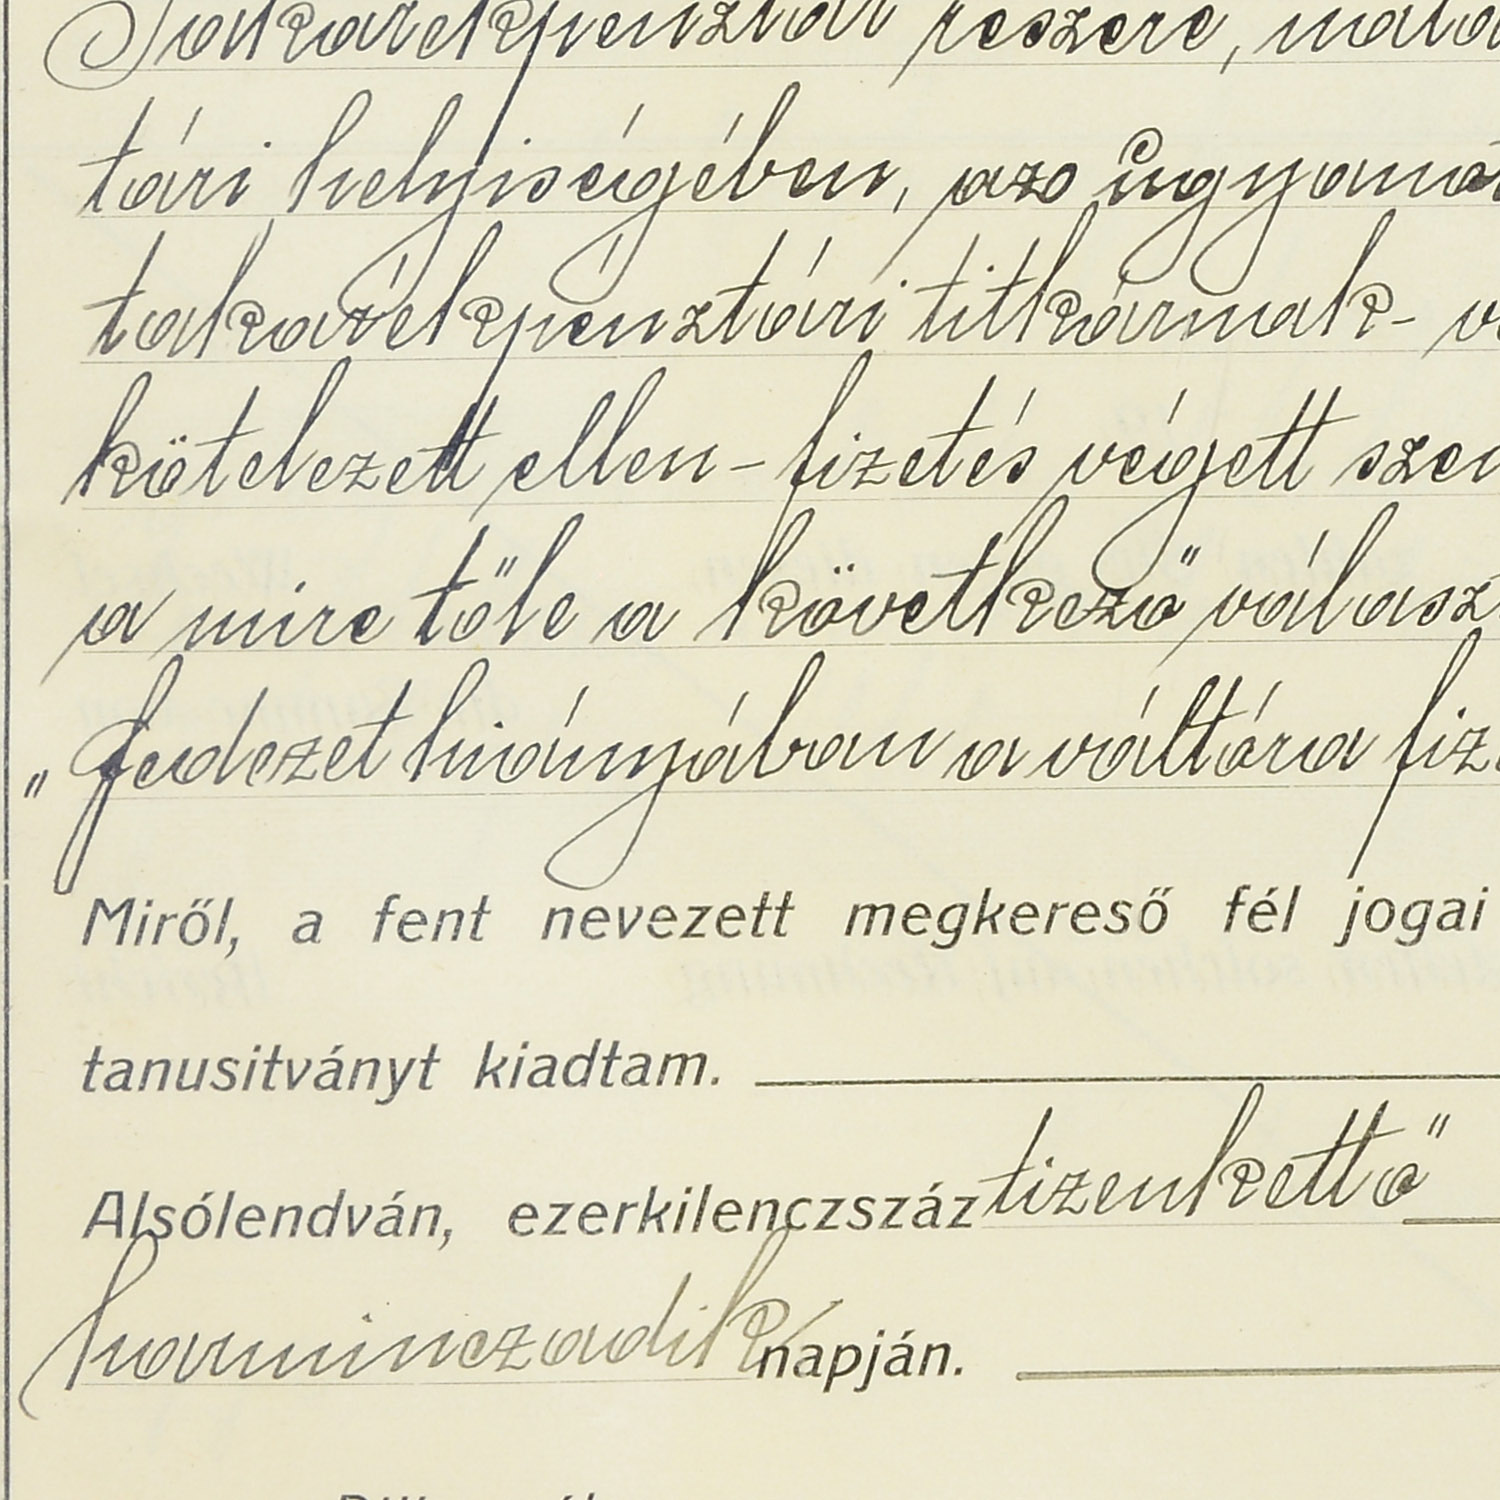 Takarékpénztár részére, 
tári helyiségében, az ugyanot
takarékpénztári titkárnak-
kötelezett ellen-fizetés végett
a mire tőle a következő válasz
„Fedezet hiányában a váltóra fiz
Miről, a fent nevezett megkereső fél jogai
tanusitványt kiadtam.
Alsólendván, ezerkilenczszáz tizenkettő
harminczadik napján.